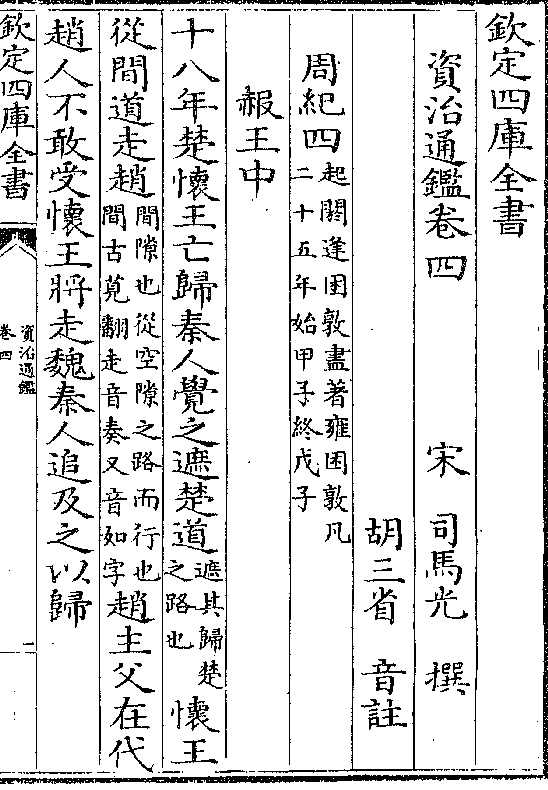 欽定四庫全書
資治通鑑卷四
宋 司馬光 撰
胡三省 音註
周紀四起閼逢困敦盡著雍困敦凡
二十五年始甲子終戊子
赧王中
十八年楚懷王亡歸秦人覺之遮楚道遮其歸楚
之路也懷王
從間道走趙間隙也從空隙之路而行也
間古莧翻走音奏又音如字趙主父在代
趙人不敢受懷王將走魏秦人追及之以歸
欽定四庫全書
資治通鑑
卷四
一